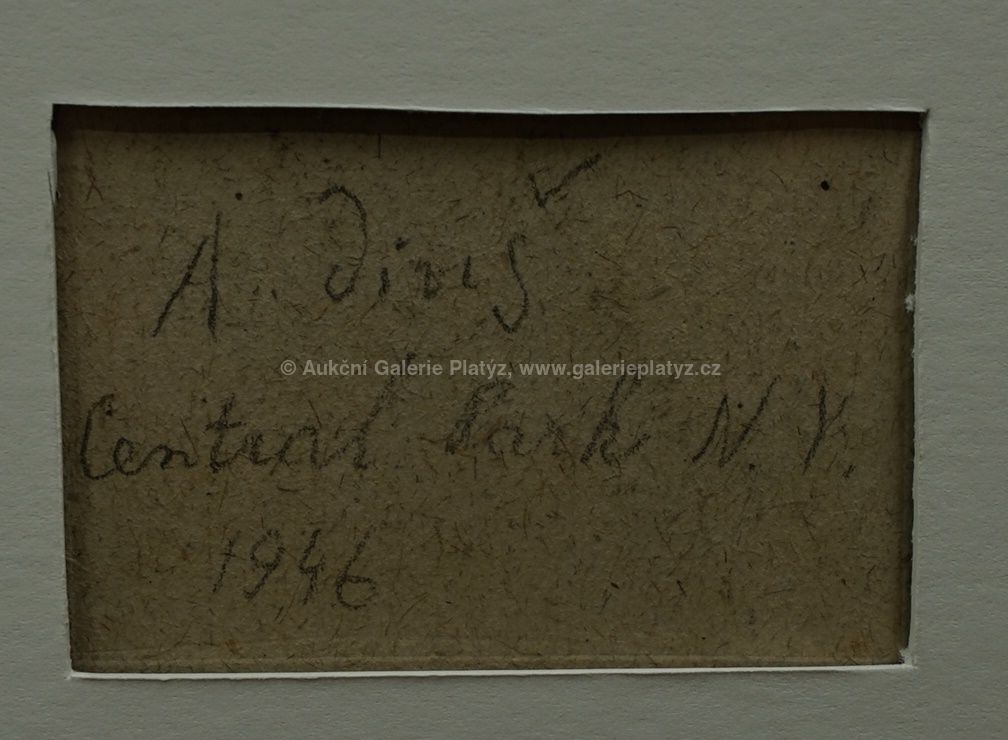 A. Diviš
© Aukční Galerie Platýz, www.galerieplatyz.cz
Central Park N.Y.
1946